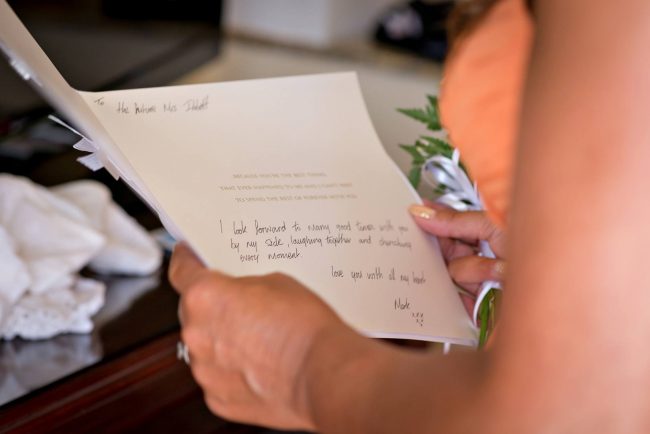 To the future Mrs
...BECAUSE YOU'RE THE BEST THING
THAT EVER HAPPENED TO ME AND I CAN'T WAIT
TO SPEND THE REST OF FOREVER WITH YOU
I look forward to many good times with you
by my side, laughing together and cherishing
every moment
love you with all my heart
Mark
xxx